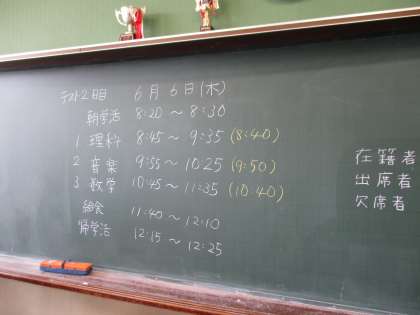 テスト2日目 6月6日(木)
朝学活 8:20～8:30
1 理科 8:45～9:35 (8:40)
2 音楽 9:55～10:25 (9:50)
3 数学 10:45～11:35 (10:40)
給食 11:40～12:10
帰学活 12:15～12:25
在籍者
出席者
欠席者